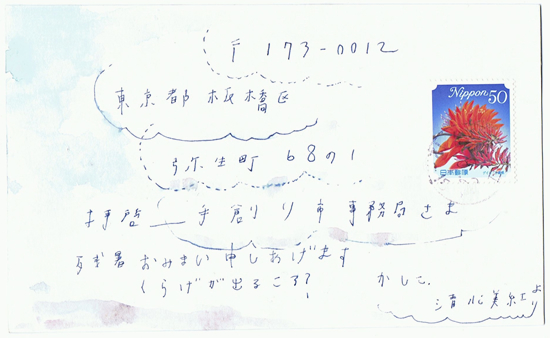 〒173-0012
東京都板橋区
Nippon 50
日本郵便
弥生町 68の1
拝啓 手創り市事務局さま
残暑おみまい申しあげます
くらげが出るころ?
かしこ
清 美紅より